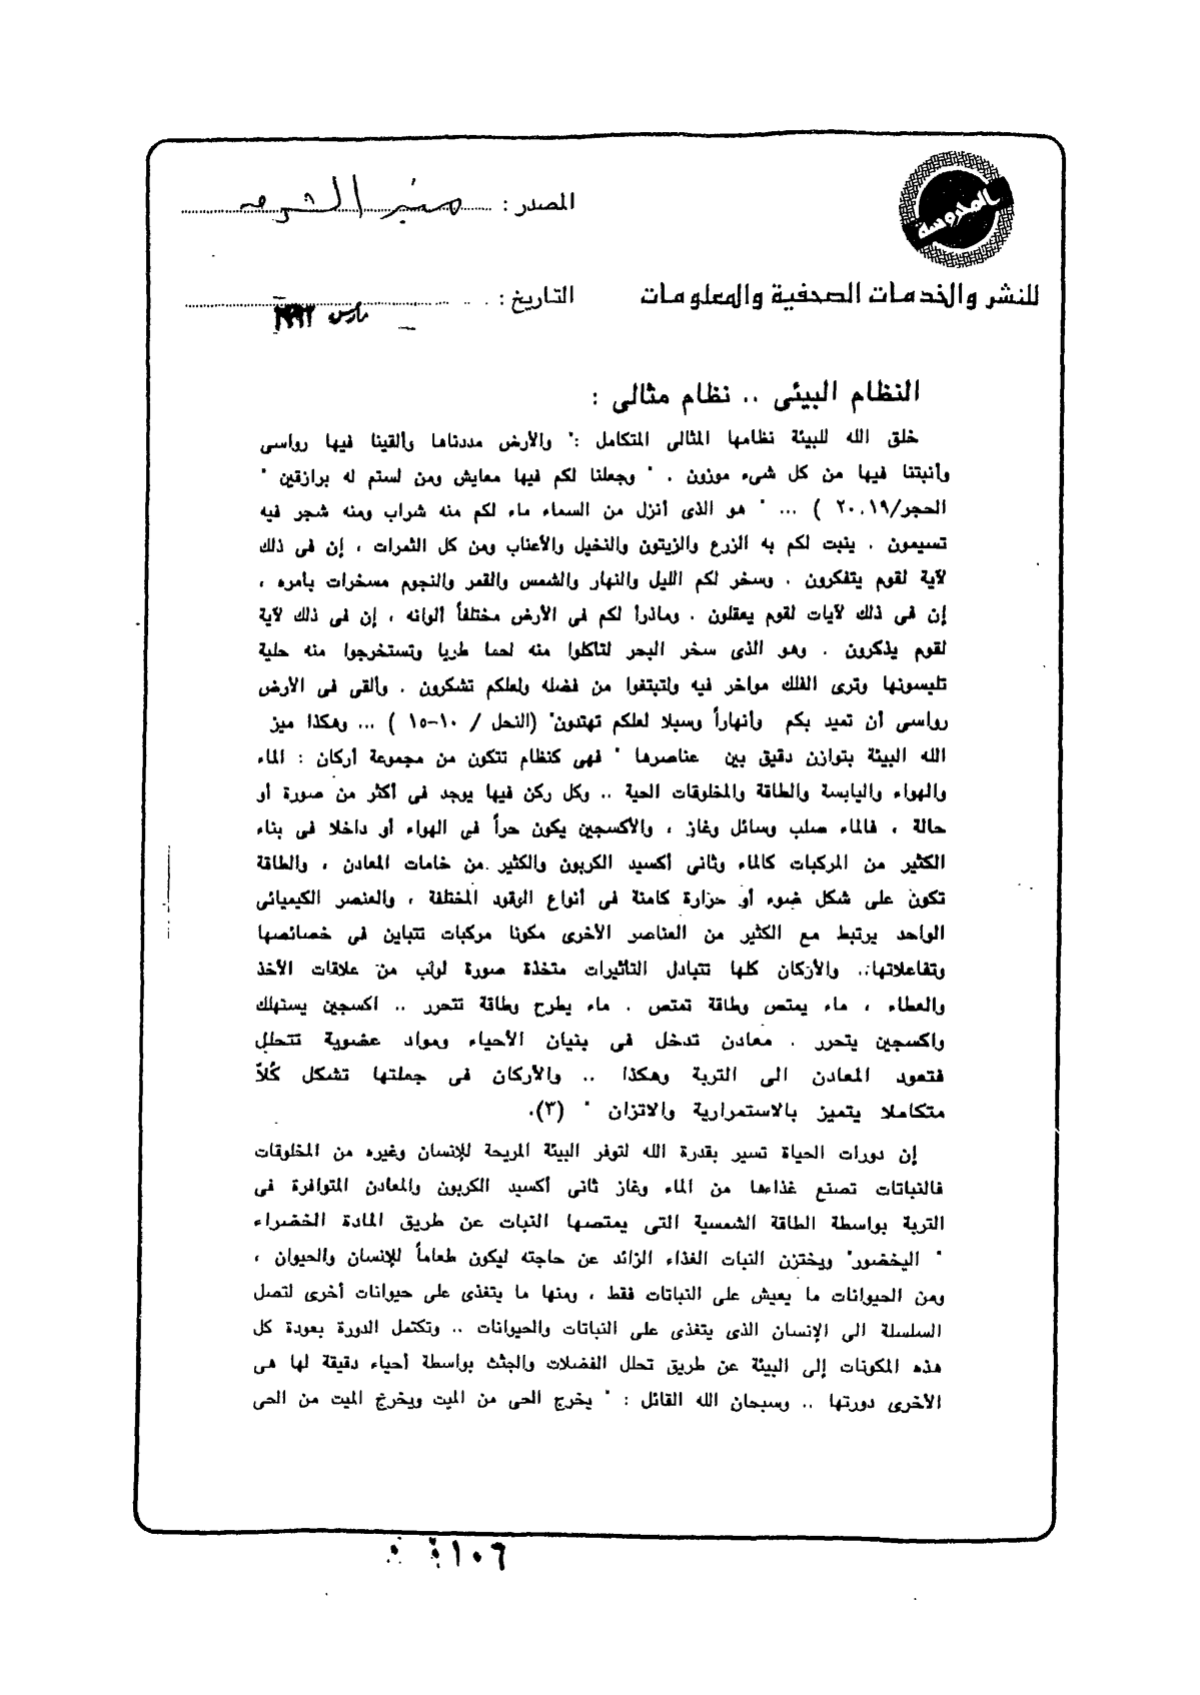 المدروسة
المصدر : منبر الشرق
للنشر والخدمات الصحفية والمعلومات
التاريخ : مارس ١٩٩٢
النظام البيئى .. نظام مثالى :
خلق الله للبيئة نظامها المثالى المتكامل :" والأرض مددناها وألقينا فيها رواسى
وأنبتنا فيها من كل شىء موزون . " وجعلنا لكم فيها معايش ومن لستم له برازقين "
الحجر/٢٠،١٩ ) ... " هو الذى أنزل من السماء ماء لكم منه شراب ومنه شجر فيه
تسيمون . ينبت لكم به الزرع والزيتون والنخيل والأعناب ومن كل الثمرات ، إن فى ذلك
لآية لقوم يتفكرون . وسخر لكم الليل والنهار والشمس والقمر والنجوم مسخرات بأمره ،
إن فى ذلك لآيات لقوم يعقلون . وماذرأ لكم فى الأرض مختلفاً ألوانه ، إن فى ذلك لآية
لقوم يذكرون . وهو الذى سخر البحر لتاكلوا منه لحما طريا وتستخرجوا منه حلية
تلبسونها وترى الفلك مواخر فيه ولتبتغوا من فضله ولعلكم تشكرون . وألقى فى الأرض
رواسى أن تميد بكم وأنهاراً وسبلا لعلكم تهتدون" (النحل / ١٠-١٥ ) ... وهكذا ميز
الله البيئة بتوازن دقيق بين عناصرها " فهى كنظام تتكون من مجموعة أركان : الماء
والهواء واليابسة والطاقة والمخلوقات الحية .. وكل ركن فيها يوجد فى أكثر من صورة أو
حالة ، فالماء صلب وسائل وغاز ، والأكسجين يكون حراً فى الهواء أو داخلا فى بناء
الكثير من المركبات كالماء وثانى أكسيد الكربون والكثير من خامات المعادن ، والطاقة
تكون على شكل ضوء أو حرارة كامنة فى أنواع الوقود المختلفة ، والعنصر الكيميائى
الواحد يرتبط مع الكثير من العناصر الأخرى مكونا مركبات تتباين فى خصائصها
وتفاعلاتها.. والأركان كلها تتبادل التأثيرات متخذة صورة لولب من علاقات الأخذ
والعطاء ، ماء يمتص وطاقة تمتص . ماء يطرح وطاقة تتحرر .. اكسجين يستهلك
واكسجين يتحرر . معادن تدخل فى بنيان الأحياء ومواد عضوية تتحلل
فتعود المعادن الى التربة وهكذا .. والأركان فى جملتها تشكل كُلاً
متكاملا يتميز بالاستمرارية والاتزان " (٣).
إن دورات الحياة تسير بقدرة الله لتوفر البيئة المريحة للإنسان وغيره من المخلوقات
فالنباتات تصنع غذاءها من الماء وغاز ثانى أكسيد الكربون والمعادن المتوافرة فى
التربة بواسطة الطاقة الشمسية التى يمتصها النبات عن طريق المادة الخضراء
" اليخضور" ويختزن النبات الغذاء الزائد عن حاجته ليكون طعاماً للإنسان والحيوان ،
ومن الحيوانات ما يعيش على النباتات فقط ، ومنها ما يتغذى على حيوانات أخرى لتصل
السلسلة الى الإنسان الذى يتغذى على النباتات والحيوانات .. وتكتمل الدورة بعودة كل
هذه المكونات إلى البيئة عن طريق تحلل الفضلات والجثث بواسطة أحياء دقيقة لها هى
الأخرى دورتها .. وسبحان الله القائل : " يخرج الحى من الميت ويخرج الميت من الحى
١٠٦